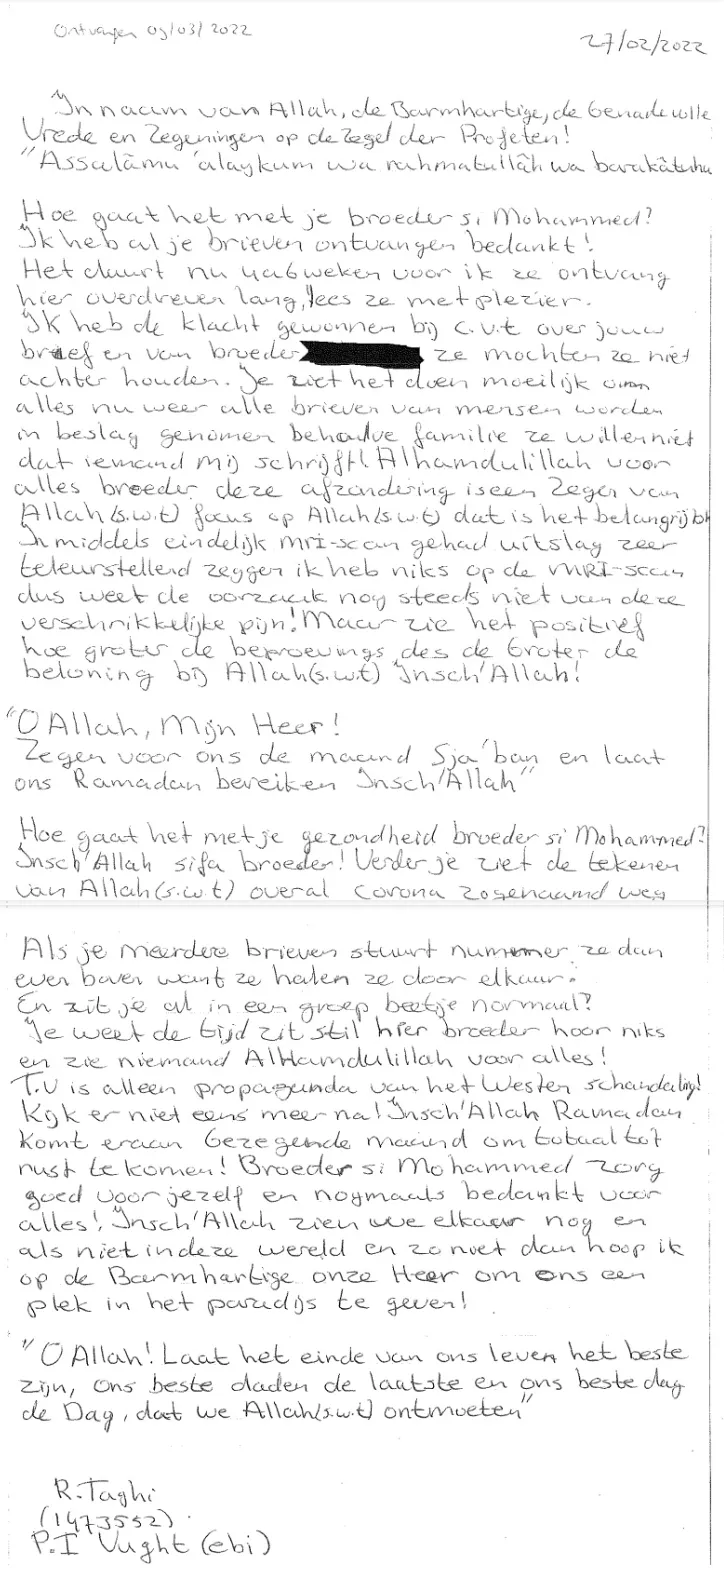 Ontvangen 09/03/2022
27/02/2022
"In naam van Allah, de Barmhartige, de Genadevolle
Vrede en Zegeningen op de Zegel der Profeten!
"Assalāmu 'alaykum wa rahmatullāh wa barakātuhu
Hoe gaat het met je broeder si Mohammed?
Ik heb al je brieven ontvangen bedankt!
Het duurt nu 4a6 weken voor ik ze ontvang
hier overdreven lang, lees ze met plezier.
IK heb de klacht gewonnen bij c.v.t over jouw
brief en van broeder ze mochten ze niet
achter houden. Je ziet het doen moeilijk om
alles nu weer alle brieven van mensen worden
in beslag genomen behalve familie ze willen niet
dat iemand mij schrijft! Alhamdulillah voor
alles broeder deze afzondering is een Zegen van
Allah(s.w.t) focus op Allah(s.w.t) dat is het belangrijkst
Inmiddels eindelijk MRI-scan gehad uitslag zeer
teleurstellend zeggen ik heb niks op de MRI-scan
dus weet de oorzaak nog steeds niet van deze
verschrikkelijke pijn! Maar zie het positief
hoe groter de beproevings des de Groter de
beloning bij Allah(s.w.t) Insch'Allah!
"O Allah, Mijn Heer!
Zegen voor ons de maand Sja'ban en laat
ons Ramadan bereiken Insch'Allah"
Hoe gaat het met je gezondheid broeder si Mohammed?
Insch'Allah sifa broeder! Verder je ziet de tekenen
van Allah(s.w.t) overal corona zogenaamd weg
Als je meerdere brieven stuurt nummer ze dan
even boven want ze halen ze door elkaar.
En zit je al in een groep beetje normaal?
Je weet de tijd zit stil hier broeder hoor niks
en zie niemand AlHamdulillah voor alles!
T.V is alleen propaganda van het Westen schandalig!
Kijk er niet eens meer na! Insch'Allah Ramadan
komt eraan Gezegende maand om totaal tot
rust te komen! Broeder si Mohammed zorg
goed voor jezelf en nogmaals bedankt voor
alles! Insch'Allah zien we elkaar nog en
als niet in deze wereld en zo niet dan hoop ik
op de Barmhartige onze Heer om ons een
plek in het paradijs te geven!
"O Allah! Laat het einde van ons leven het beste
zijn, ons beste daden de laatste en ons beste dag
de Dag, dat we Allah(s.w.t) ontmoeten"
R.Taghi
(1473552)
P.I Vught (ebi)